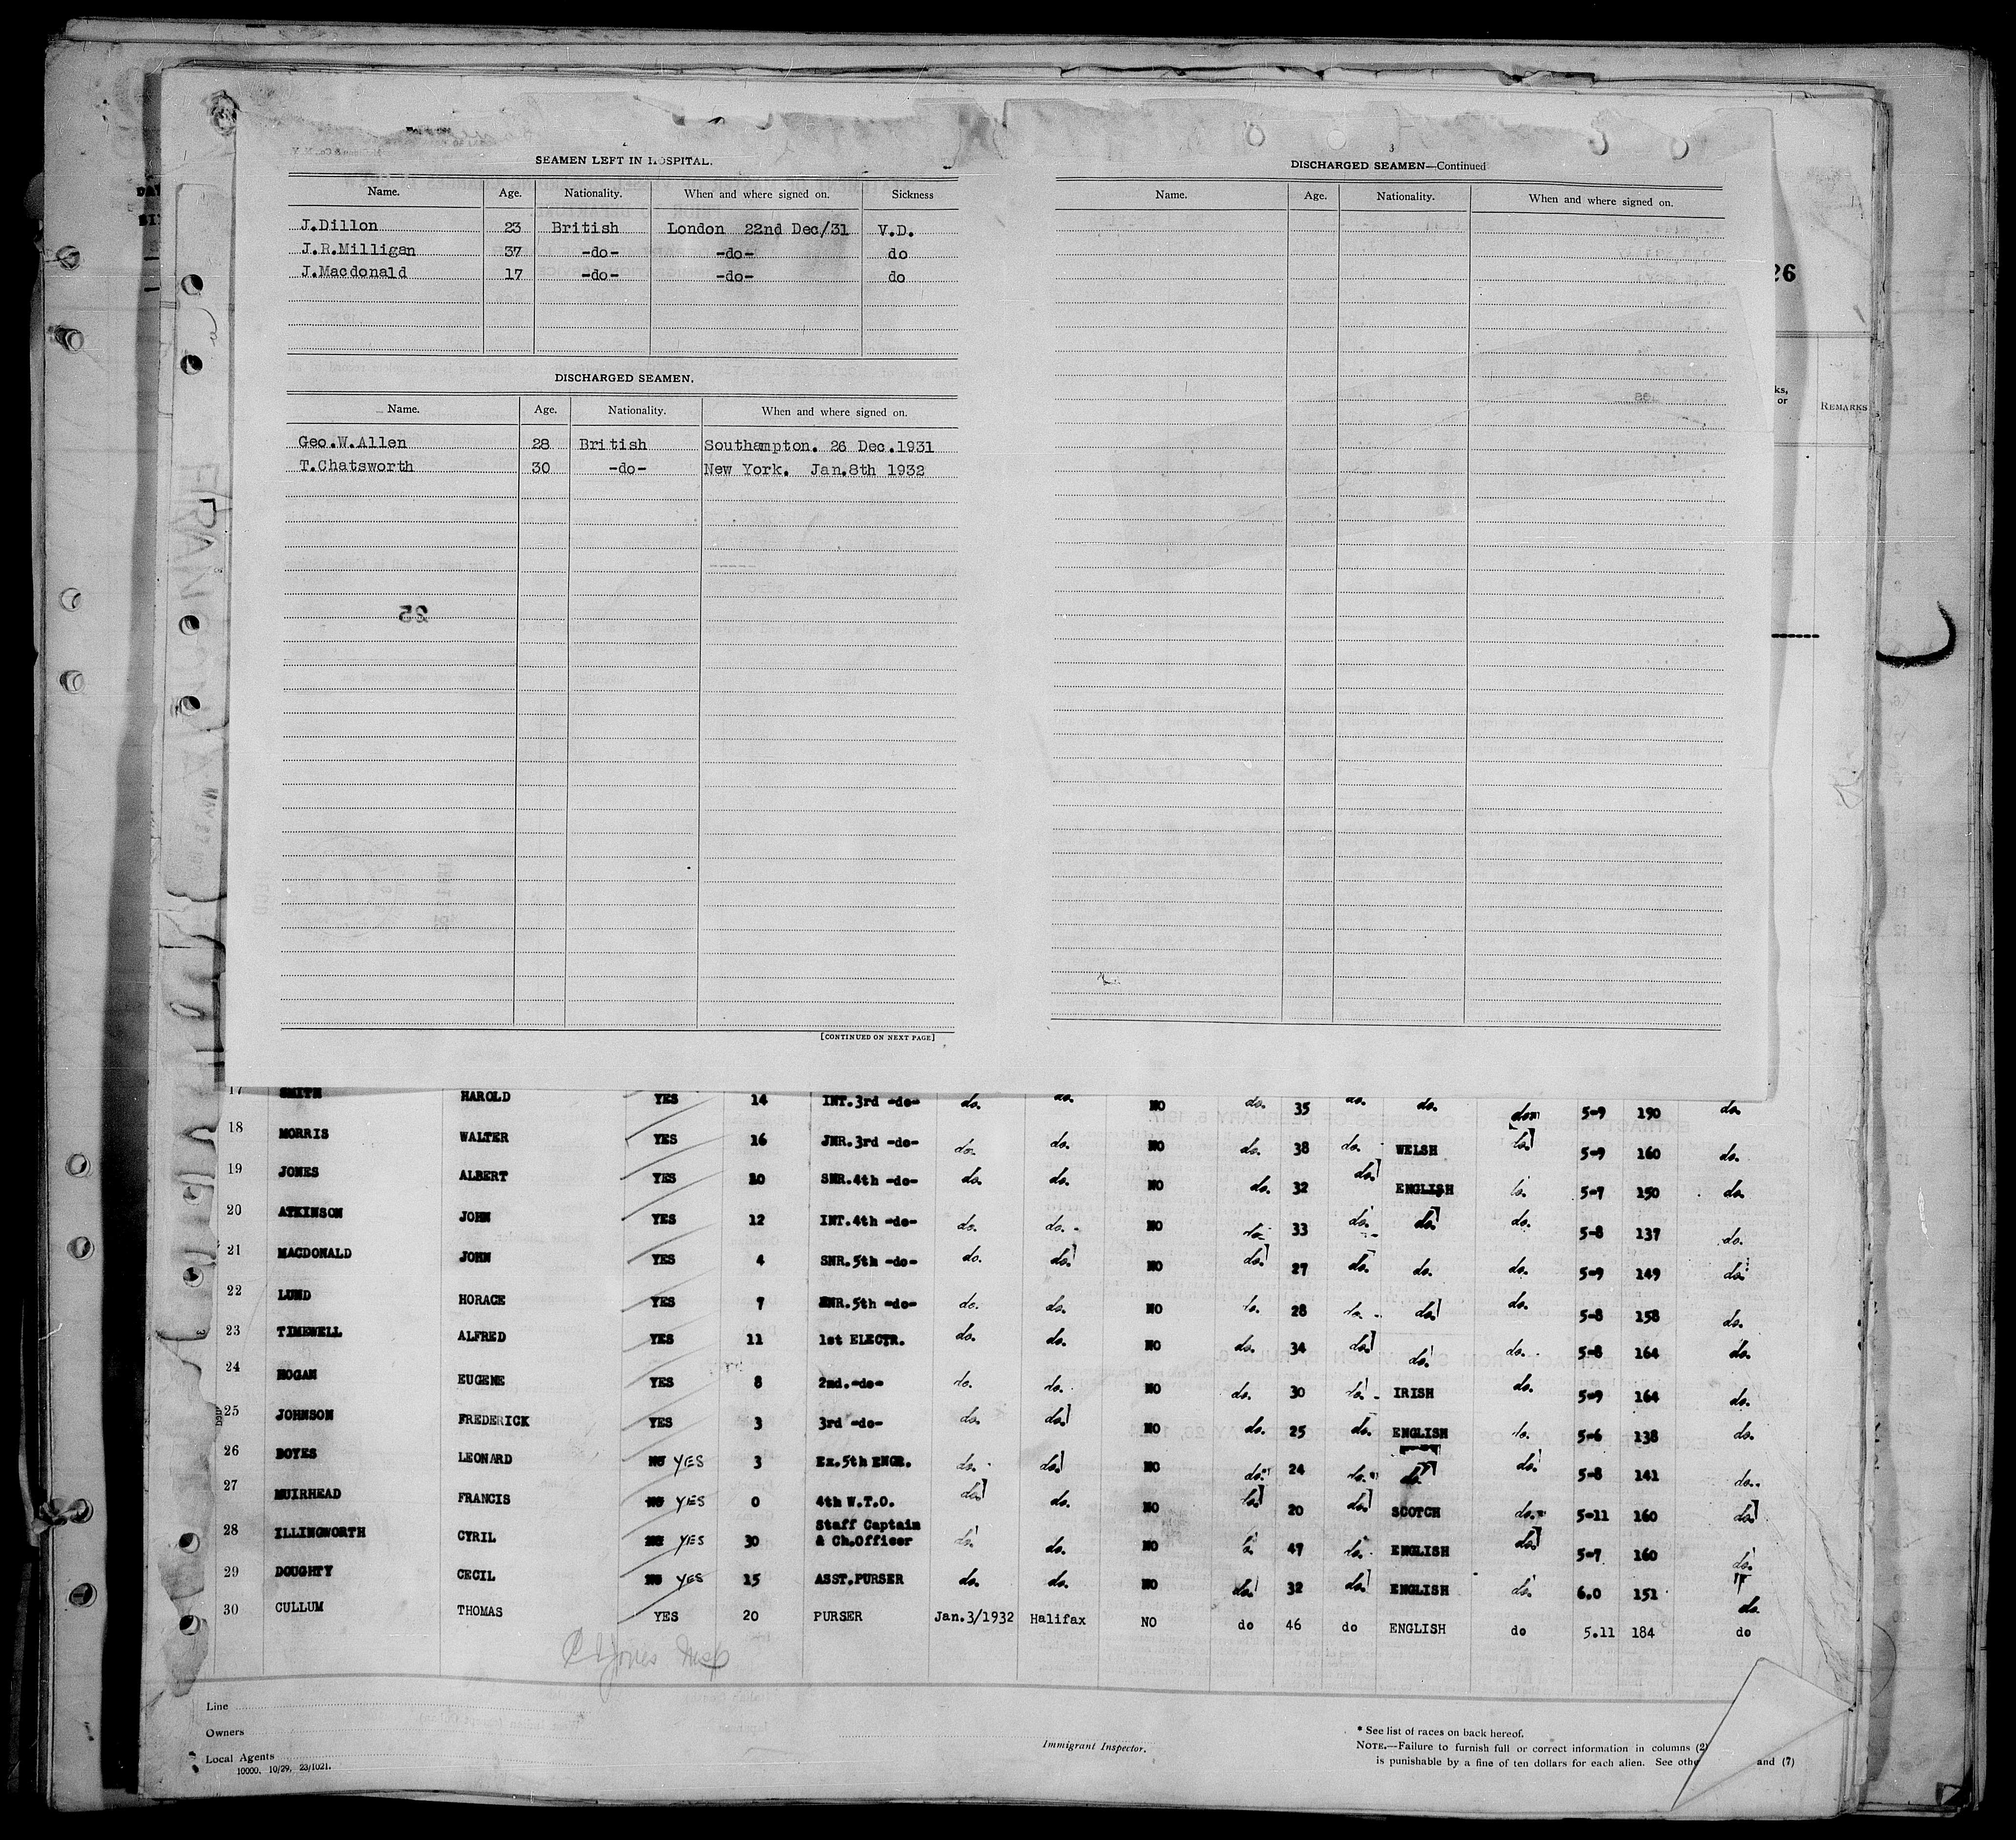 SEAMEN LEFT IN HOSPITAL.
Name. Age. Nationality. When and where signed on. Sickness
J.Dillon 23 British London 22nd Dec/31 V.D.
J.R.Milligan 37 -do- -do- do
J.Macdonald 17 -do- -do- do
DISCHARGED SEAMEN.
Name. Age. Nationality. When and where signed on.
Geo.W.Allen 28 British Southampton. 26 Dec.1931
T.Chatsworth 30 -do- New York. Jan.8th 1932
25
[CONTINUED ON NEXT PAGE]
3
DISCHARGED SEAMEN—Continued
Name. Age. Nationality. When and where signed on.
26
ks,
or
REMARKS
17 SMITH HAROLD YES 14 INT.3rd -do- do. do. NO do. 35 do. do. do. 5-9 190 do.
18 MORRIS WALTER YES 16 JNR.3rd -do- do. do. NO do. 38 do. WELSH do. 5-9 160 do.
19 JONES ALBERT YES 10 SNR.4th -do- do. do. NO do. 32 do. ENGLISH do. 5-7 150 do.
20 ATKINSON JOHN YES 12 INT.4th -do- do. do. NO do. 33 do. do. do. 5-8 137 do.
21 MACDONALD JOHN YES 4 SNR.5th -do- do. do. NO do. 27 do. do. do. 5-9 149 do.
22 LUND HORACE YES 7 JNR.5th -do- do. do. NO do. 28 do. do. do. 5-8 158 do.
23 TIMEWELL ALFRED YES 11 1st ELECTR. do. do. NO do. 34 do. do. do. 5-8 164 do.
24 HOGAN EUGENE YES 8 2nd.-do- do. do. NO do. 30 do. IRISH do. 5-9 164 do.
25 JOHNSON FREDERICK YES 3 3rd -do- do. do. NO do. 25 do. ENGLISH do. 5-6 138 do.
26 BOYES LEONARD NO YES 3 Ex.5th ENGR. do. do. NO do. 24 do. do. do. 5-8 141 do.
27 MUIRHEAD FRANCIS NO YES 0 4th W.T.O. do. do. NO do. 20 do. SCOTCH do. 5-11 160 do.
28 ILLINGWORTH CYRIL NO YES 30 Staff Captain & Ch.Officer do. do. NO do. 47 do. ENGLISH do. 5-7 160 do.
29 DOUGHTY CECIL NO YES 15 ASST.PURSER do. do. NO do. 32 do. ENGLISH do. 6.0 151 do.
30 CULLUM THOMAS YES 20 PURSER Jan.3/1932 Halifax NO do 46 do ENGLISH do 5.11 184 do
Jones Insp
Line
Owners
Local Agents
10000, 10/29, 23/1021.
Immigrant Inspector.
* See list of races on back hereof.
NOTE.—Failure to furnish full or correct information in columns (2)
is punishable by a fine of ten dollars for each alien. See othe and (7)